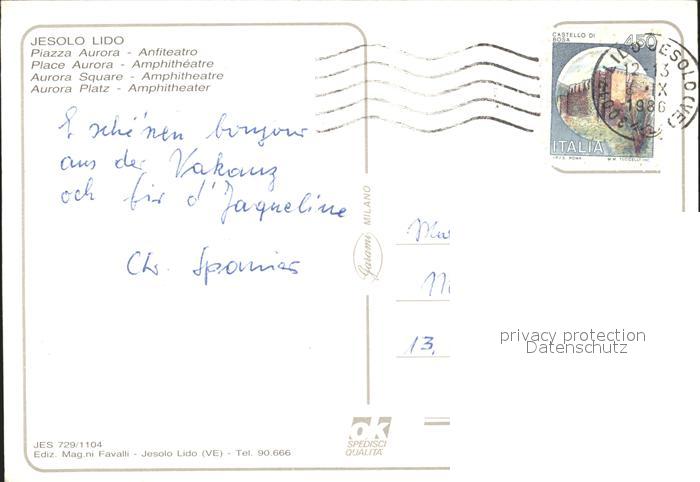 JESOLO LIDO
Piazza Aurora - Anfiteatro
Place Aurora - Amphithéatre
Aurora Square - Amphitheatre
Aurora Platz - Amphitheater
E schéinen bonjour
aus der Vakanz
och fir d'Jaqueline
Chr. Spanier
CASTELLO DI
BOSA
450
ITALIA
I.P.Z.S. ROMA
LIDO JESOLO (VE)
12-13
IX
1986
Garami MILANO
13,
privacy protection
Datenschutz
OK
SPEDISCI
QUALITA'
JES 729/1104
Ediz. Mag.ni Favalli - Jesolo Lido (VE) - Tel. 90.666